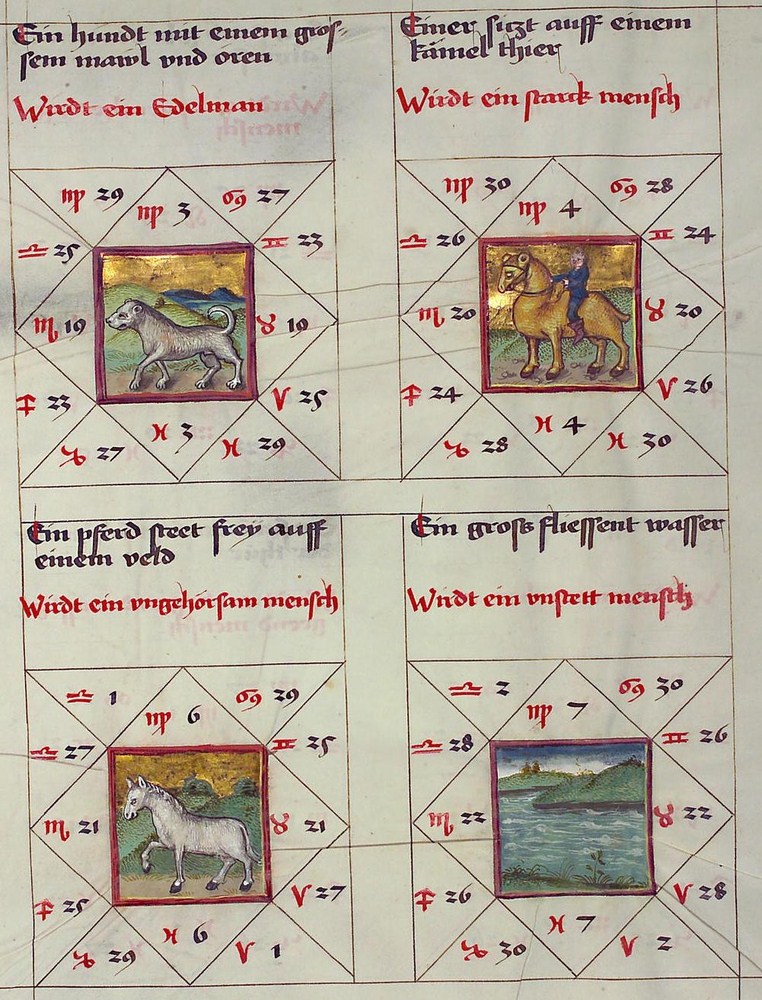 Ein hundt mit einem gros-
sem mawl vnd oren
Wirdt ein Edelman
♍ 29
♍ 3
♋ 27
♎ 25
♊ 23
♏ 19
♉ 19
♐ 23
♈ 25
♑ 27
♓ 3
♓ 29
Einer sitzt auff einem
kämel thier
Wirdt ein starck mensch
♍ 30
♍ 4
♋ 28
♎ 26
♊ 24
♏ 20
♉ 20
♐ 24
♈ 26
♑ 28
♓ 4
♓ 30
Ein pferd steet frey auff
einem veld
Wirdt ein vngehorsam mensch
♎ 1
♍ 6
♋ 29
♎ 27
♊ 25
♏ 21
♉ 21
♐ 25
♈ 27
♑ 29
♓ 6
♈ 1
Ein gross fliessent wasser
Wirdt ein vnstett mensch
♎ 2
♍ 7
♋ 30
♎ 28
♊ 26
♏ 22
♉ 22
♐ 26
♈ 28
♑ 30
♓ 7
♈ 2